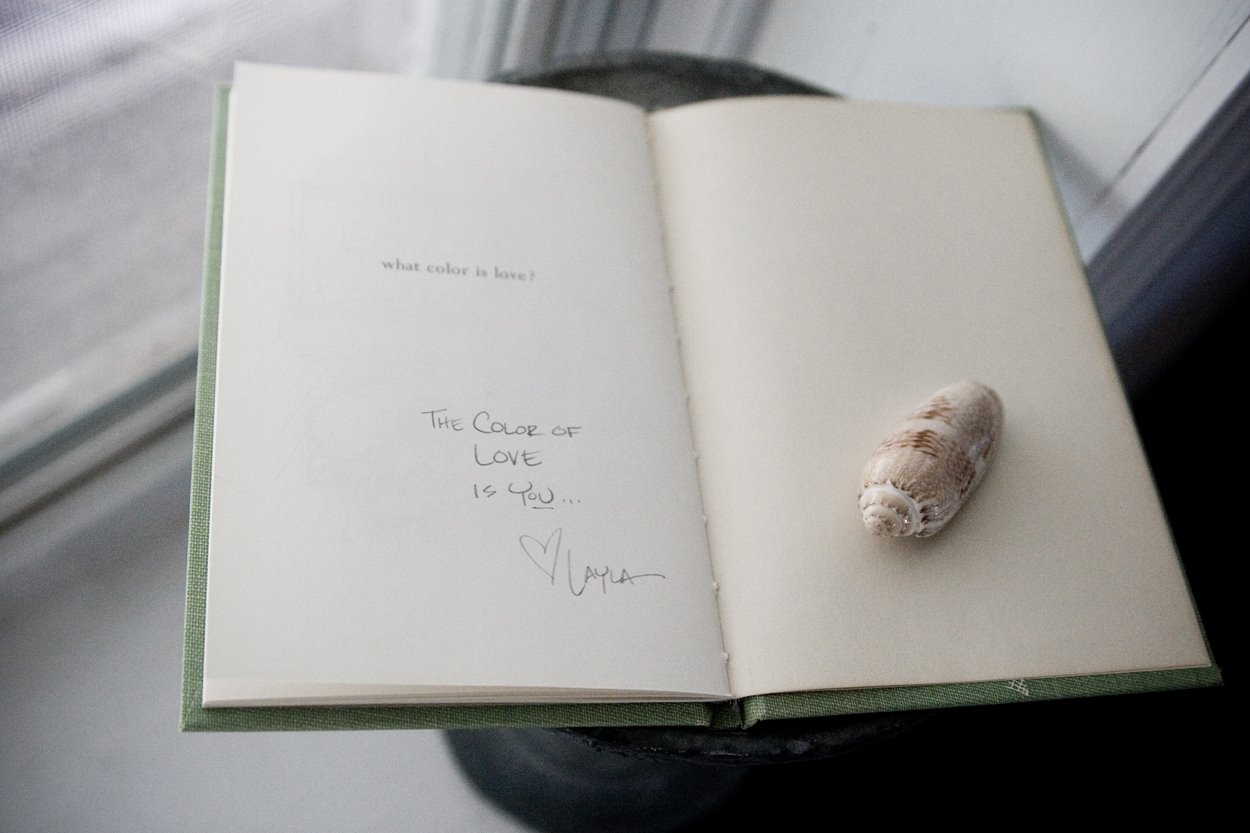 what color is love?
THE COLOR OF
LOVE
IS YOU...
♡ LAYLA